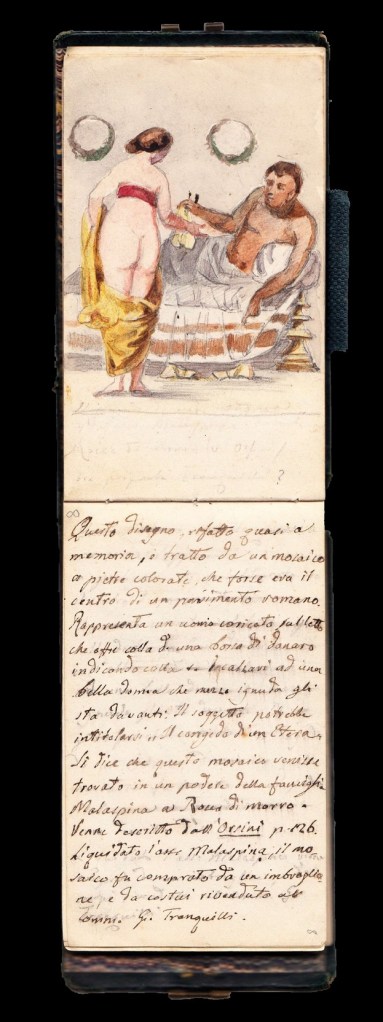 8
Questo disegno, rifatto quasi a
memoria, è tratto da un mosaico
a pietre colorate, che forse era il
centro di un pavimento romano.
Rappresenta un uomo coricato sul letto
che offre colla d. una borsa di danaro
indicando colla s. i calzari ad una
bella donna che mezzo ignuda gli
sta davanti. Il soggetto potrebbe
intitolarsi "Il congedo d'un Etera"
Si dice che questo mosaico venisse
trovato in un podere della famiglia
Malaspina a Rocca di morro.
Venne descritto dall'Orsini p. 126.
Liquidato l'asse Malaspina, il mo
saico fu comprato da un imbroglio
ne, e da costui rivenduto al
comm. G. Tranquilli.